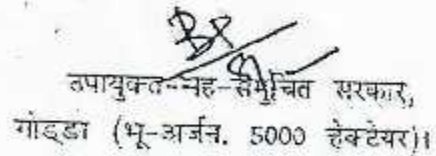 उपायुक्त-सह-समुचित सरकार,
गोड्डा (भू-अर्जन. 5000 हेक्टेयर)।